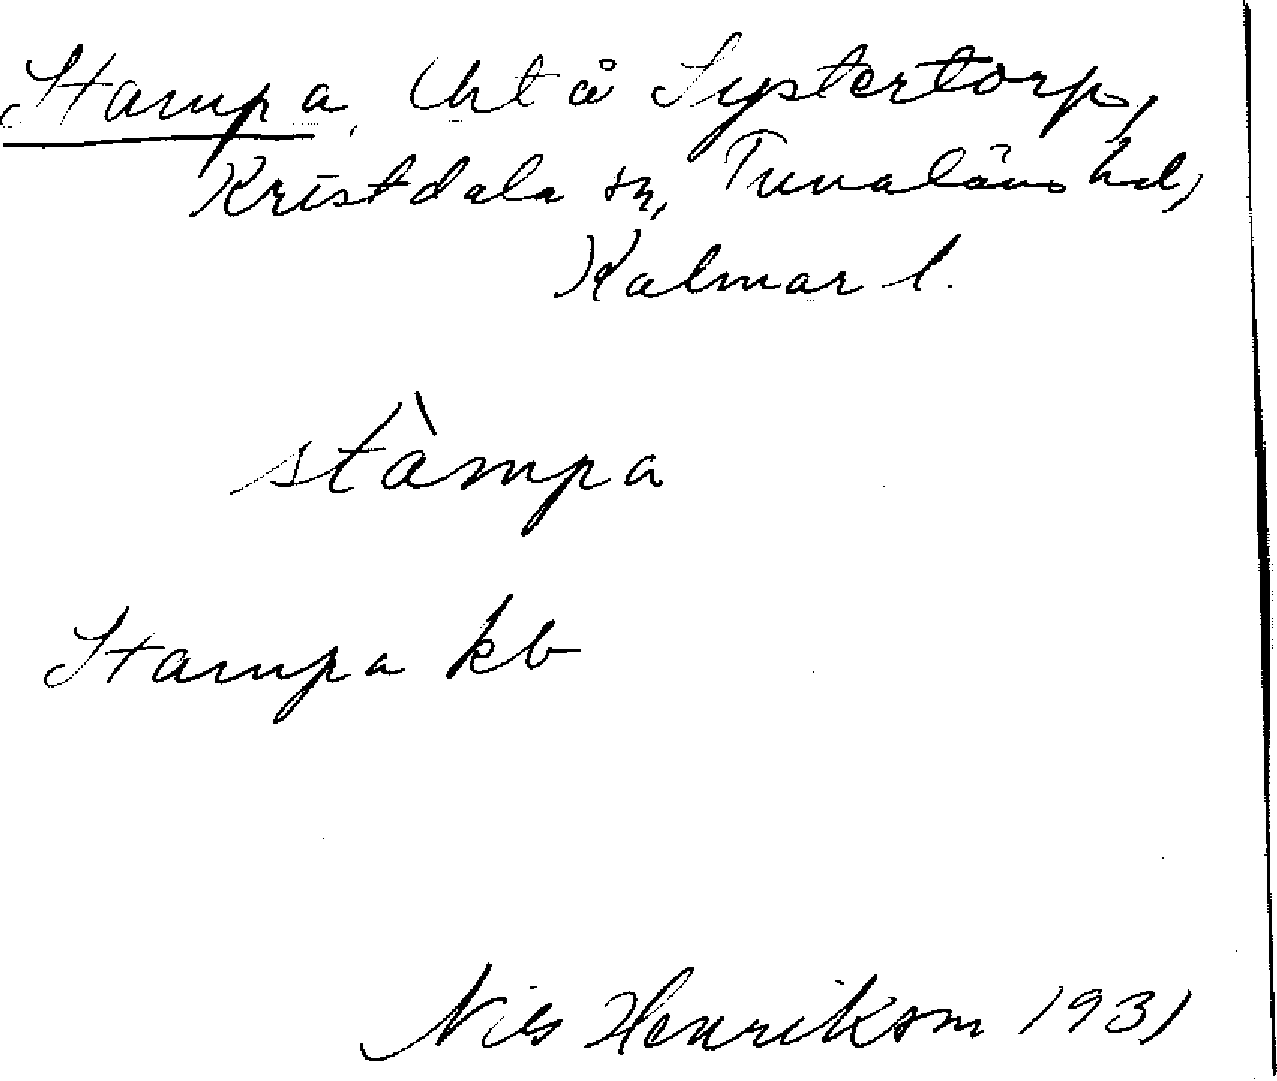 Stampa, lht å Systertorp,
Kristdala sn, Tunaläns hd,
Kalmar l.
stàmpa
Stampa kb
Nils Henrikson 1931